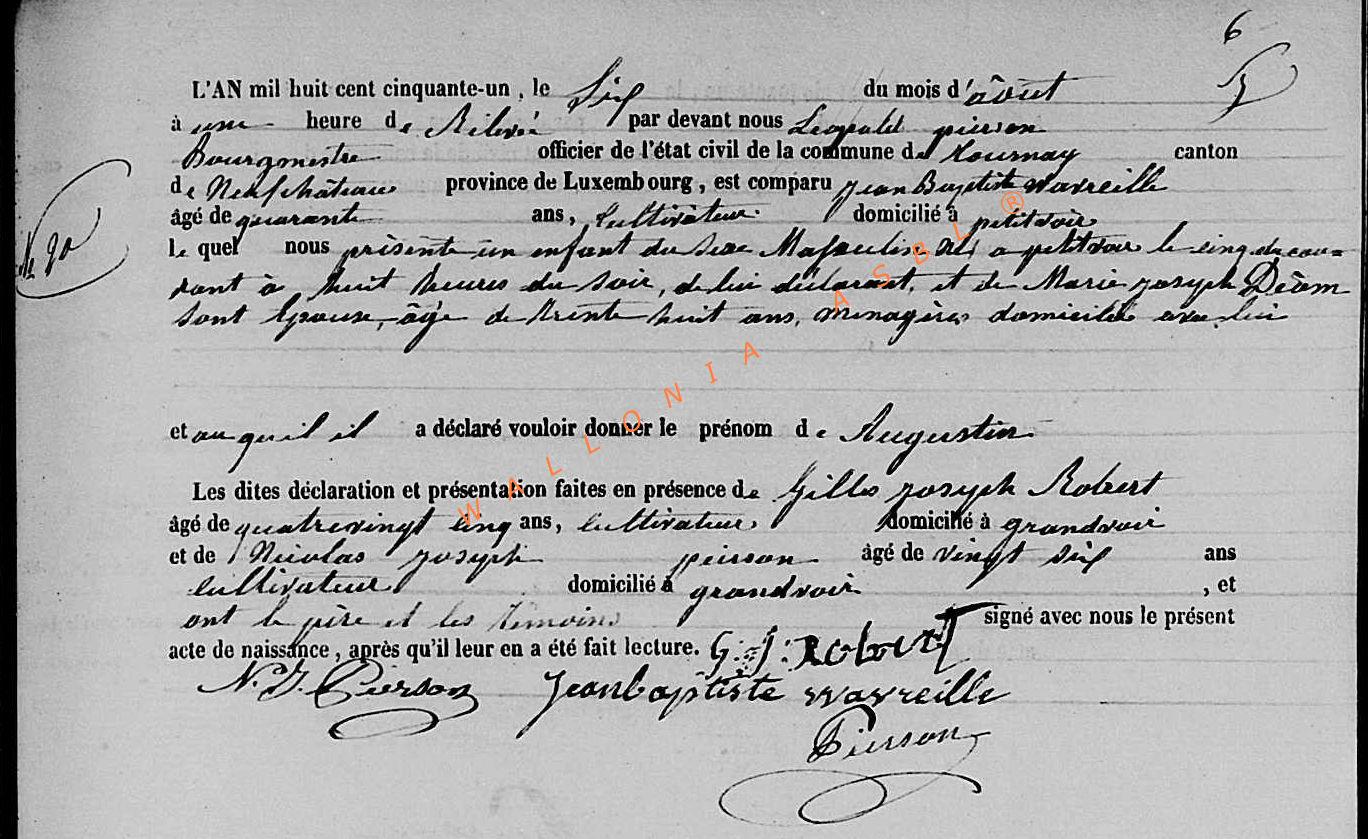 6
L'AN mil huit cent cinquante-un, le Six du mois d'août
à une heure de Rélevée par devant nous Léopold pierson
Bourgmestre officier de l'état civil de la commune de Tournay canton
de Neufchâteau province de Luxembourg, est comparu Jean Baptiste Wavreille
âgé de quarante ans, Cultivateur domicilié à petitvoir
le quel nous présente un enfant du Sexe Masculin né a petitvoir le cinq du cou=
rant à huit heures du soir, de lui déclarant, et de Marie joseph Déom
sont Epouse, âgé de trente huit ans, ménagère domiciliée avec lui
N° 20
et au quel il a déclaré vouloir donner le prénom de Augustin
Les dites déclaration et présentation faites en présence de Gilles joseph Robert
âgé de quatrevingt cinq ans, cultivateur domicilié à grandvoir
et de Nicolas joseph peirson âgé de vingt six ans
cultivateur domicilié à grandvoir, et
ont le père et les témoins signé avec nous le présent
acte de naissance, après qu'il leur en a été fait lecture. G: J: Robert
N. J. Pierson Jeanbaptiste Wavreille
Pierson
WALLONIA ASBL ®